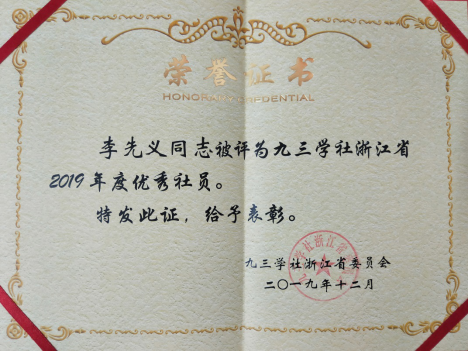 荣誉证书
HONORARY CREDENTIAL
李先义同志被评为九三学社浙江省
2019年度优秀社员。
特发此证，给予表彰。
九三学社浙江省委员会
二〇一九年十二月